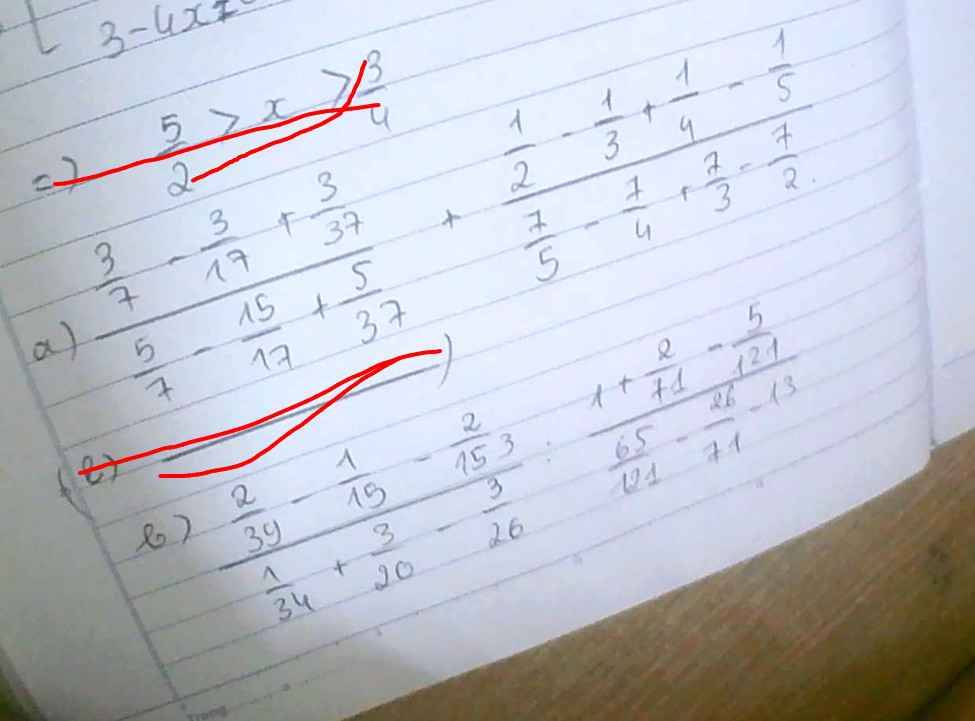 3 - 4x
=) 5/2 > x > 3/4
a) (3/7 - 3/17 + 3/37)/(5/7 - 15/17 + 5/37) + (1/2 - 1/3 + 1/4 - 1/5)/(7/5 - 7/4 + 7/3 - 7/2).
b) (2/39 - 1/15 - 2/153)/(1/34 + 3/20 - 3/26) : (1 + 2/71 - 5/121)/(65/121 - 26/71 - 13)
Trang